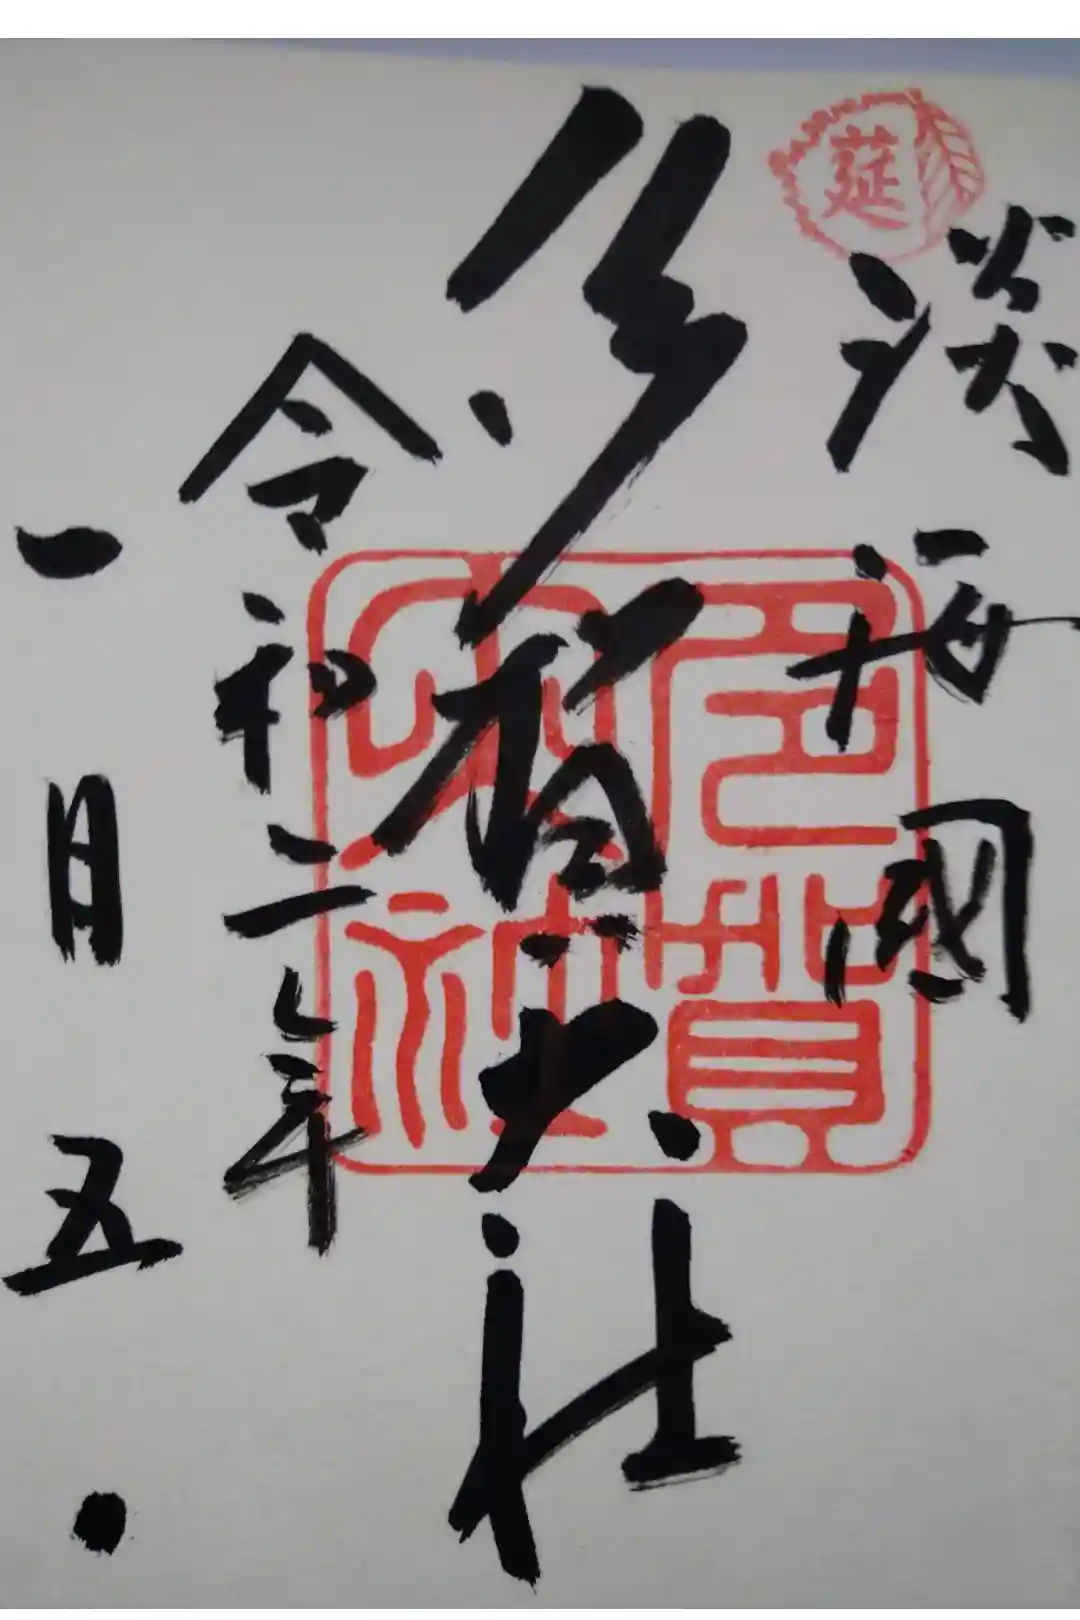 莚
淡海國
多賀大社
多賀
大社
令和二年
一月五日